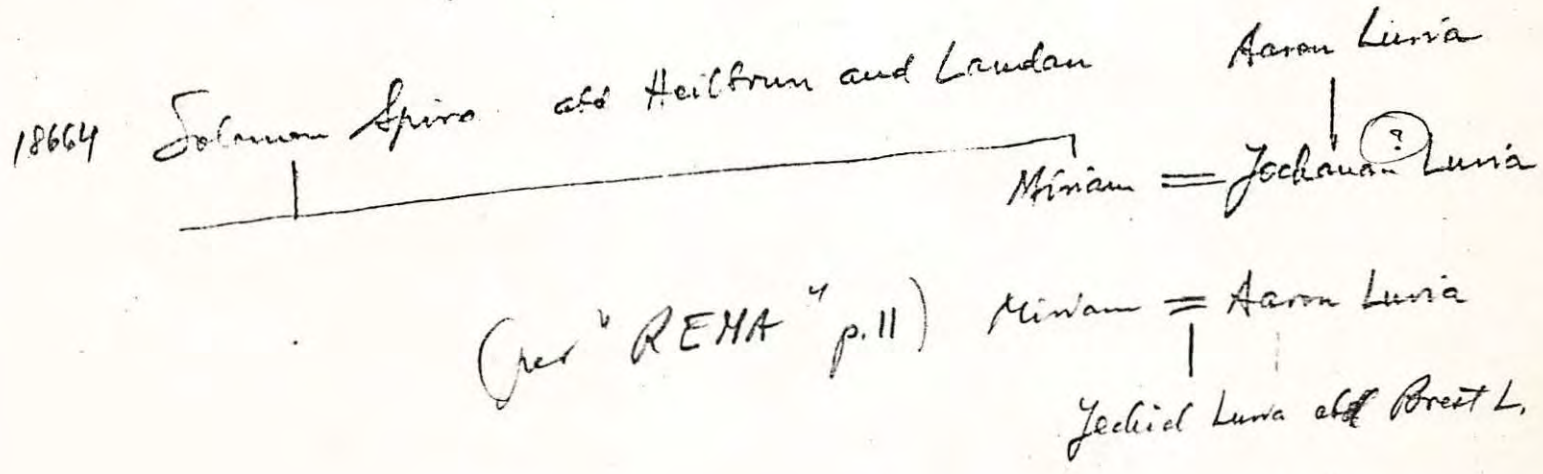 Aaron Luria
18664 Solomon Spiro abd Heilbrun and Landau
Miriam = Jochanan (?) Luria
(per "REMA" p.11) Miriam = Aaron Luria
Jechiel Luria abd Brest L.